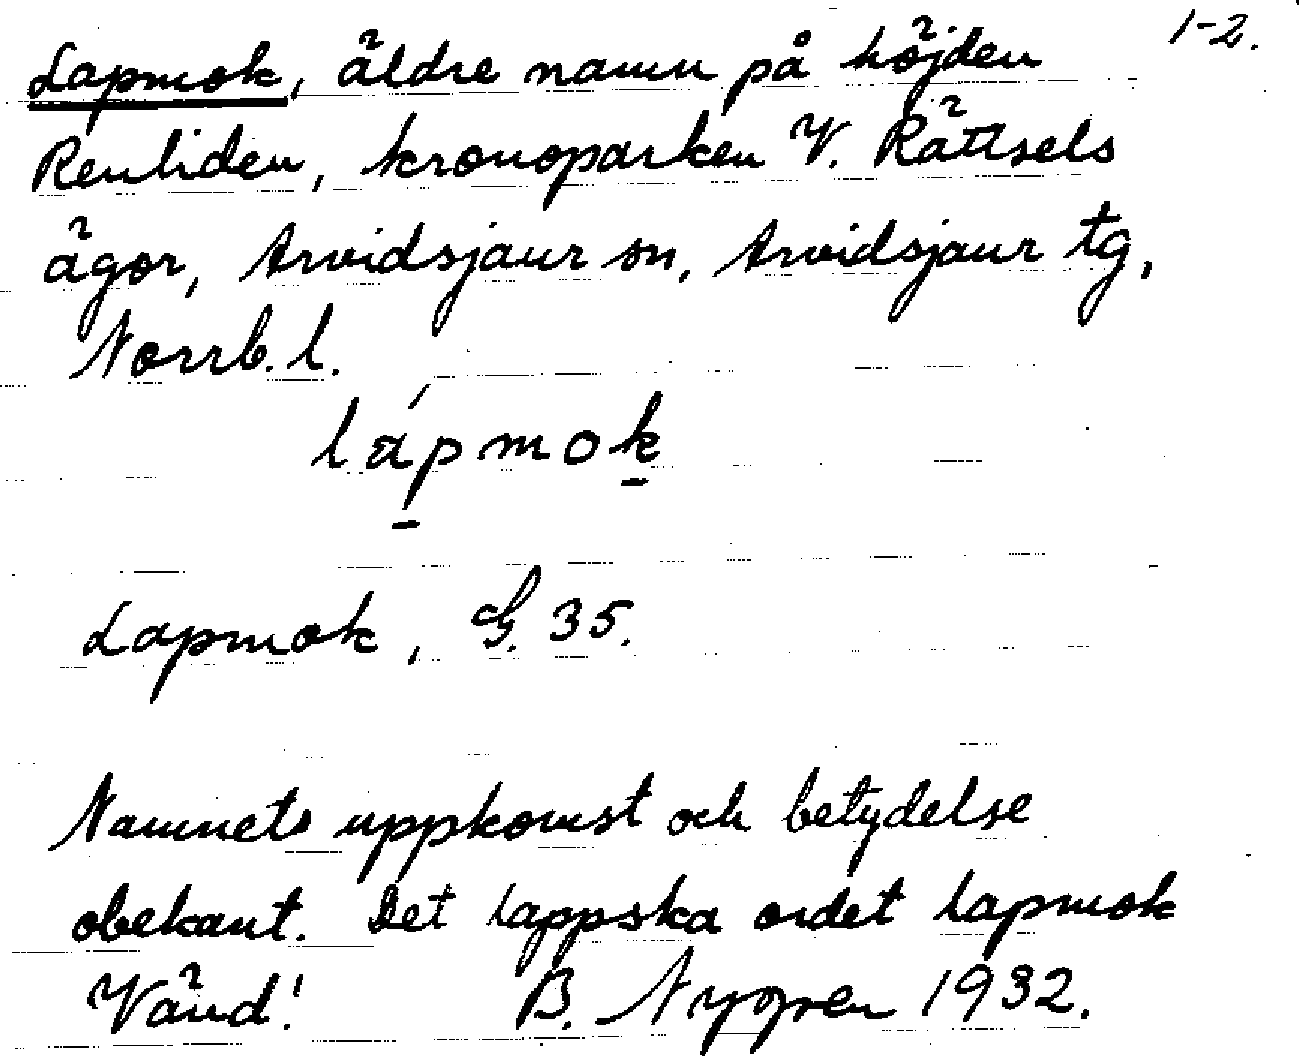 1-2.
Lapmok, äldre namn på höjden
Renliden, kronoparken V. Rättsels
ägor, Arvidsjaur sn, Arvidsjaur tg,
Norrb. l.
lápmok
Lapmok, G. 35.
Namnets uppkomst och betydelse
obekant. Det lappska ordet lapmok
Vänd! B. Nygren 1932.